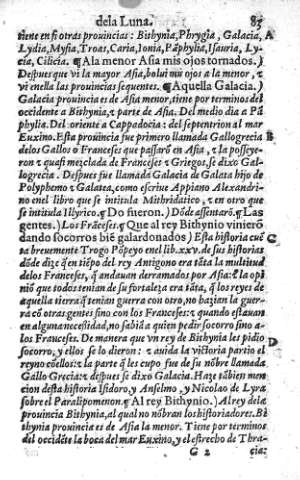 dela Luna. 83
tiene en si otras prouincias: Bithynia, Phrygia, Galacia, A
Lydia, Mysia, Troas, Caria, Ionia, Pãphylia, Isauria, Ly-
cia, Cilicia. ¶ Ala menor Asia mis ojos tornados.)
Despues que vi la mayor Asia, bolui mis ojos a la menor, τ
vi en ella las prouincias sequentes. ¶ Aquella Galacia.)
Galacia prouincia es de Asia menor, tiene por terminos del
occidente a Bithynia, τ parte de Asia. Del medio dia a Pã
phylia. Del oriente a Cappadocia: del septentrion al mar
Euxino. Esta prouincia fue primero llamada Gallogrecia B
delos Gallos o Franceses que passarõ en Asia, τ la posseye-
ron τ quasi mezclada de Franceses τ Griegos, se dixo Gal-
logrecia. Despues fue llamada Galacia de Galata hijo de
Polyphemo τ Galatea, como escriue Appiano Alexandri-
no enel libro que se intitula Mithridatico, τ en otro que
se intitula Illyrico. ¶ Do fueron.) Dõde assentarõ. ¶ Las
gentes.) Los Frãceses. ¶ Que al rey Bithynio vinierõ
dando socorros biẽ galardonados) Esta historia cuẽ C
ta breuemente Trogo Põpeyo enel lib.xxv. de sus historias
dõde dize q̃ en tiẽpo del rey Antigono era tãta la multitud
delos Franceses, q̃ andauan derramados por Asia: τ la opi
niõ que todos tenian de su fortaleza era tãta, q̃ los reyes de
aquella tierra q̃ tenian guerra con otro, no hazian la guer-
ra cõ otras gentes sino con los Franceses: τ quando estauan
en alguna necessidad, no sabiã a quien pedir socorro sino a-
los Franceses. De manera que vn rey de Bithynia les pidio
socorro, y ellos se lo dieron: τ auida la victoria partio el D
reyno cõellos: τ la parte q̃ les cupo fue de su nõbre llamada
Gallo Grecia: τ despues se dixo Galacia. Haze tãbien men
cion desta historia Isidoro, y Anselmo, y Nicolao de Lyra
sobre el Paralipomenon. ¶ Al rey Bithynio.) Al rey dela
prouincia Bithynia, al qual no nõbran los historiadores. Bi
thynia prouincia es de Asia la menor. Tiene por terminos
del occidẽte la boca del mar Euxino, y el estrecho de Thra-
G 2 cia: